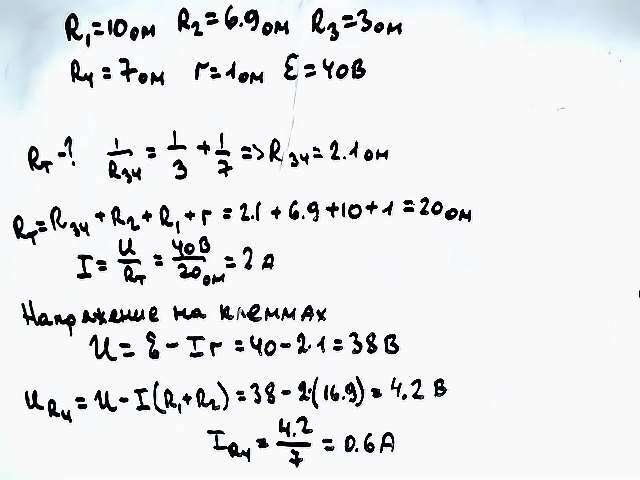 R₁=10ом R₂=6.9ом R₃=3ом
R₄=7ом r=1ом Ɛ=40В
Rт-? 1/R₃₄ = 1/3 + 1/7 => R₃₄=2.1ом
Rт=R₃₄+R₂+R₁+r=2.1+6.9+10+1=20ом
I=U/Rт=40В/20ом=2A
Напряжение на клеммах
U=Ɛ-Ir=40-2·1=38В
U_R₄=U-I(R₁+R₂)=38-2·(16.9)=4.2В
I_R₄=4.2/7=0.6A